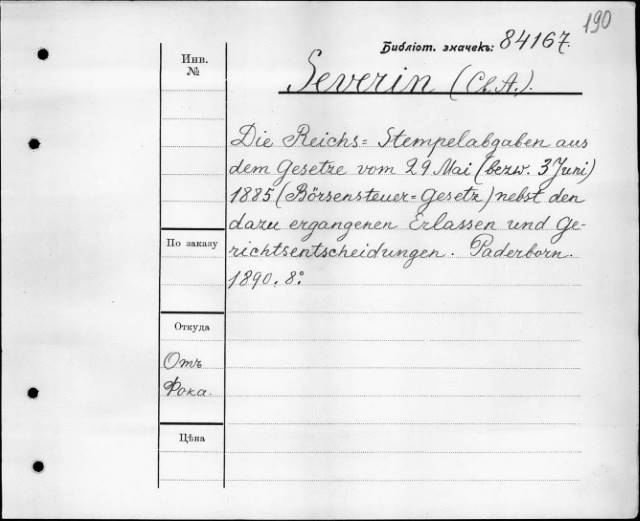 190
Библіот. значекъ: 84167.
Инв.
№
Severin (Ch. A.).
Die Reichs= Stempelabgaben aus
dem Gesetze vom 29 Mai (bezw. 3 Juni)
1885 (Börsensteuer=Gesetz) nebst den
dazu ergangenen Erlassen und Ge-
richtsentscheidungen. Paderborn.
1890. 8º
По заказу
Откуда
Отъ
Фока.
Цѣна